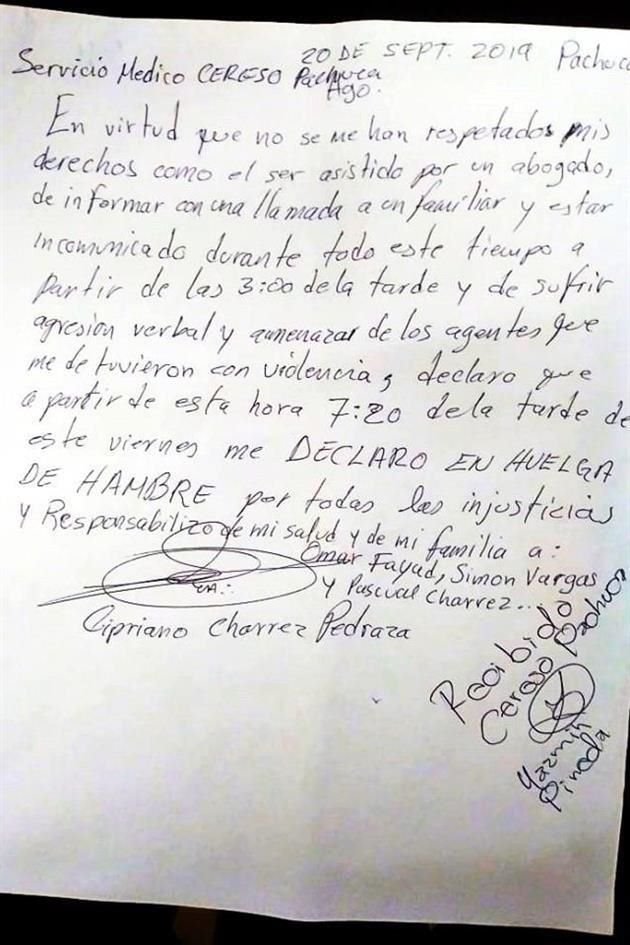 20 DE SEPT. 2019 Pachuca
Servicio Medico CERESO Pachuca
Hgo.
En virtud que no se me han respetados mis
derechos como el ser asistido por un abogado,
de informar con una llamada a un familiar y estar
incomunicado durante todo este tiempo a
partir de las 3:00 de la tarde y de sufrir
agresion verbal y amenazar de los agentes que
me detuvieron con violencia, declaro que
a partir de esta hora 7:20 de la tarde de
este viernes me DECLARO EN HUELGA
DE HAMBRE por todas las injusticias
y Responsabilizo de mi salud y de mi familia a:
Omar Fayad, Simon Vargas
y Pascual Charrez...
Cipriano Charrez Pedraza
Recibido
Cereso Pachuca
Yazmin
Pineda